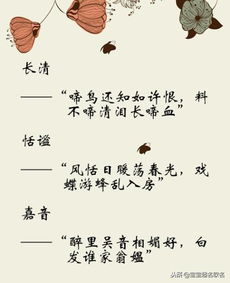 长清
——“啼鸟还知如许恨，料
不啼清泪长啼血”
恬谧
——“风恬日暖荡春光，戏
蝶游蜂乱入房”
嘉音
——“醉里吴音相媚好，白
发谁家翁媪”